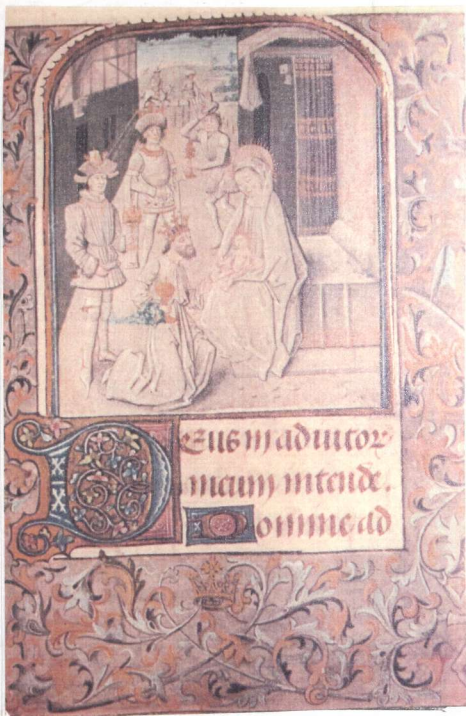 Deus in adiutor
meum intende.
Domine ad